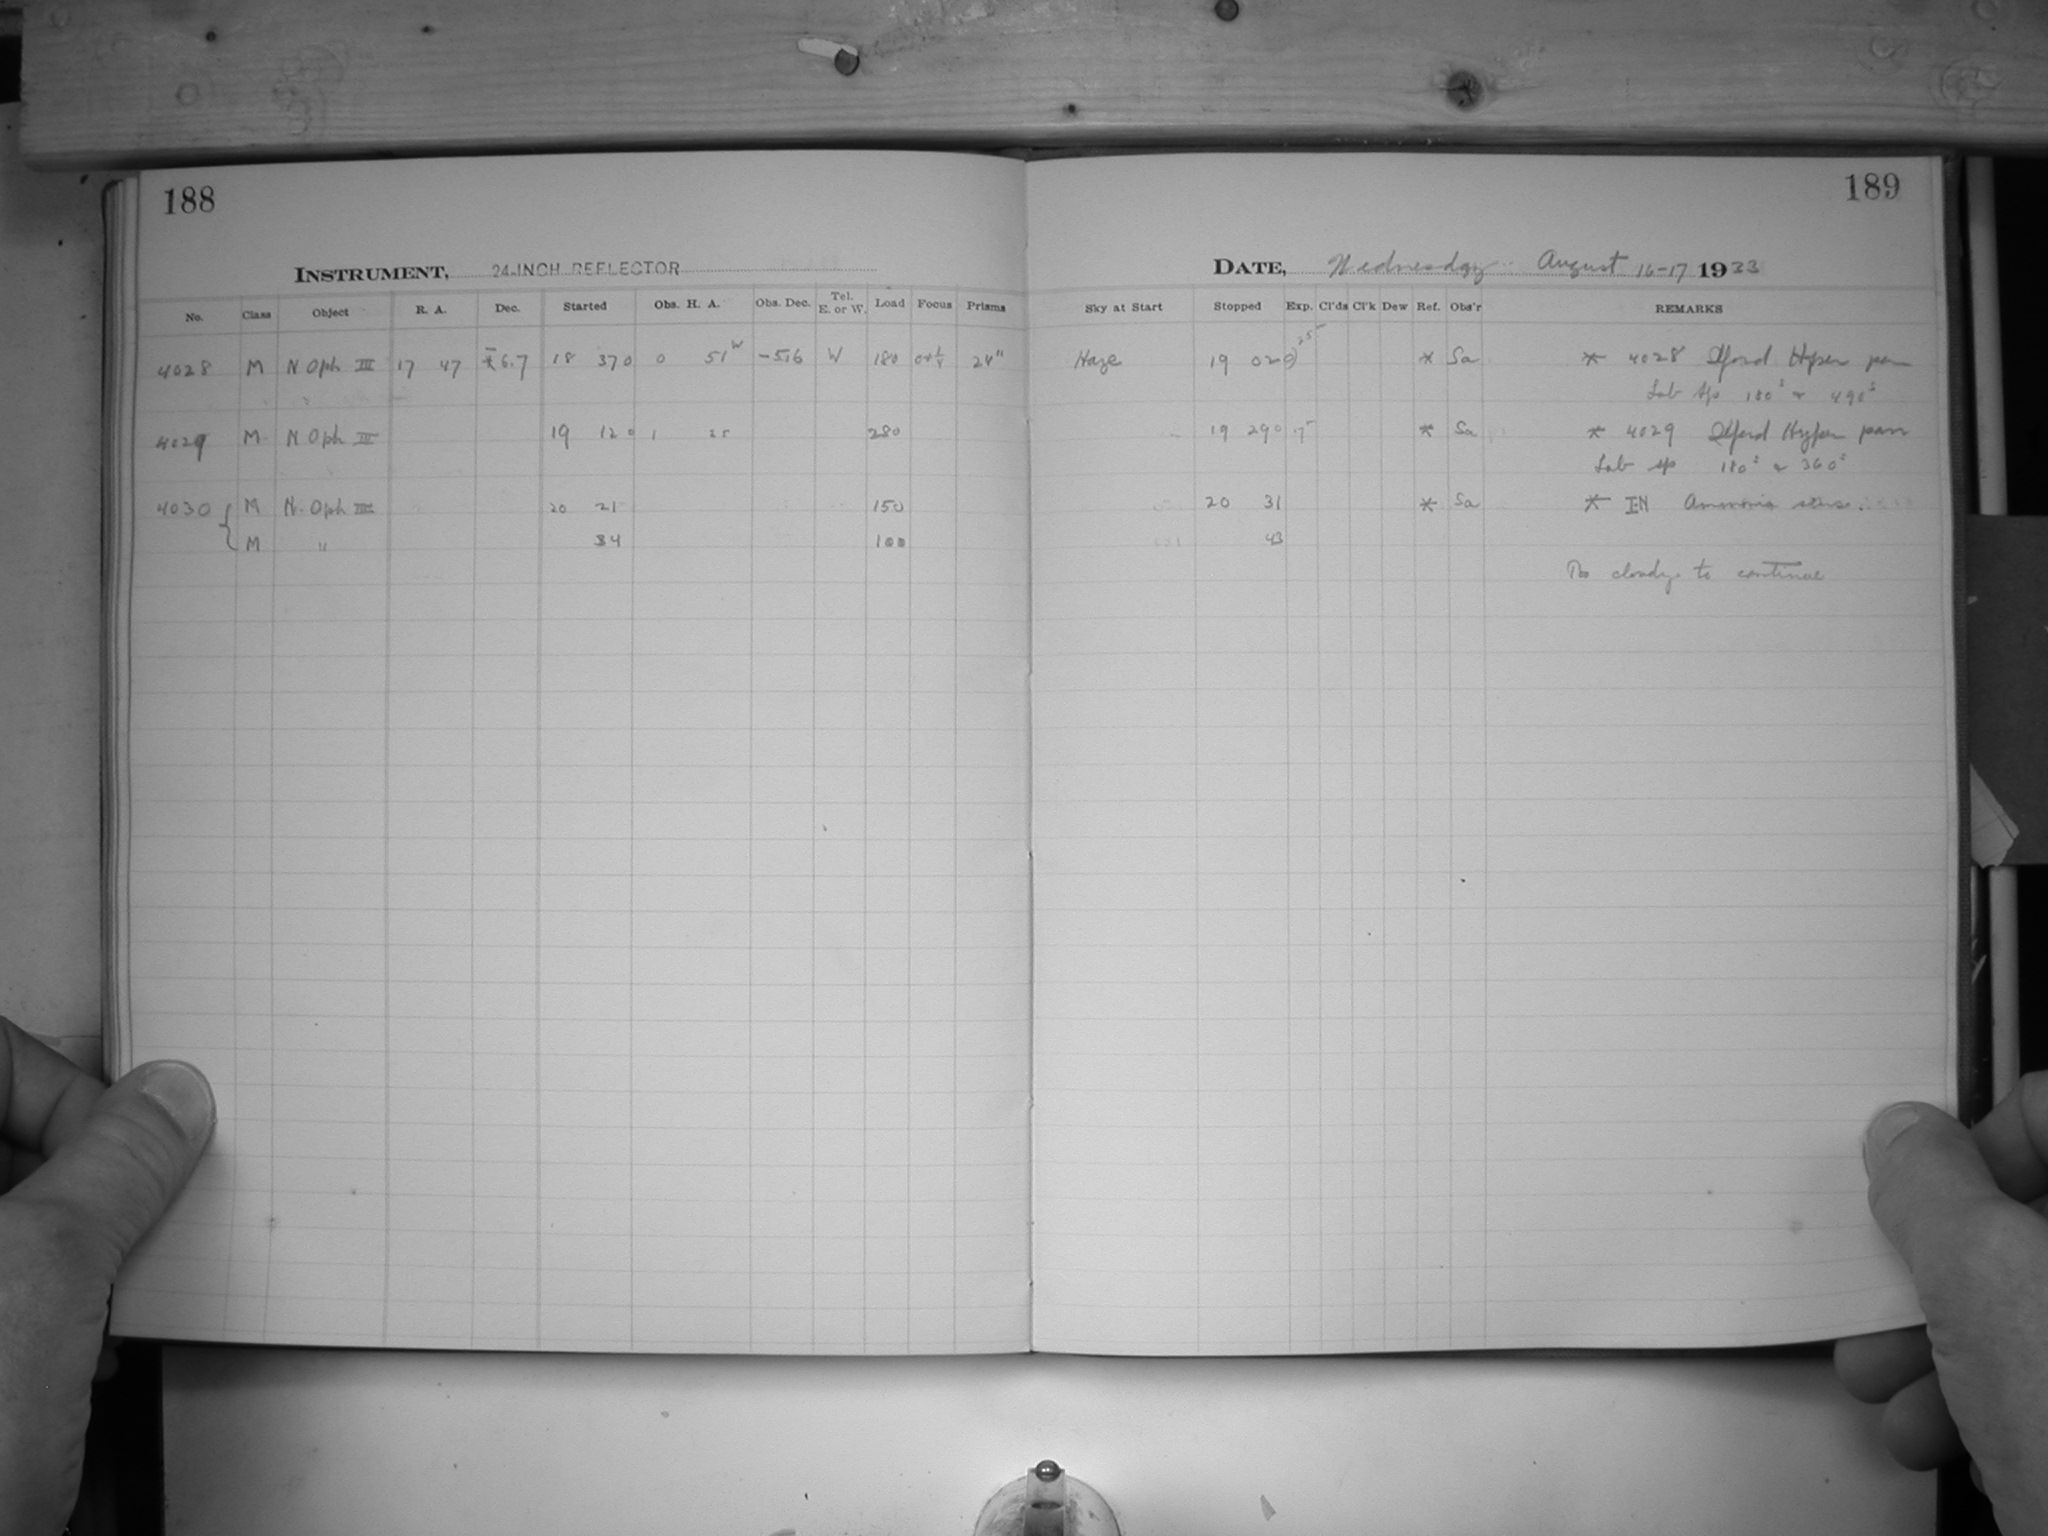 188
189
INSTRUMENT, 24-INCH REFLECTOR
DATE, Wednesday August 16-17 1933
No. Class Object R. A. Dec. Started Obs. H. A. Obs. Dec. Tel. E. or W. Load Focus Prisms
Sky at Start Stopped Exp. Cl'ds Cl'k Dew Ref. Obs'r REMARKS
4028 M N Oph III 17 47 6.7 18 37 0 0 51 W W 180 24"
Haze 19 02 25 * Sa * 4028 Ilford Hyper pan
Lab sp 180s & 490s
4029 M N Oph III 19 12 0 1 25 280
19 29 0 * Sa * 4029 Ilford Hyper pan
Lab sp 180s & 360s
4030 M N. Oph III 20 21 150
20 31 * Sa * I-N Ammonia sens.
M " 34 100
43
Too cloudy to continue